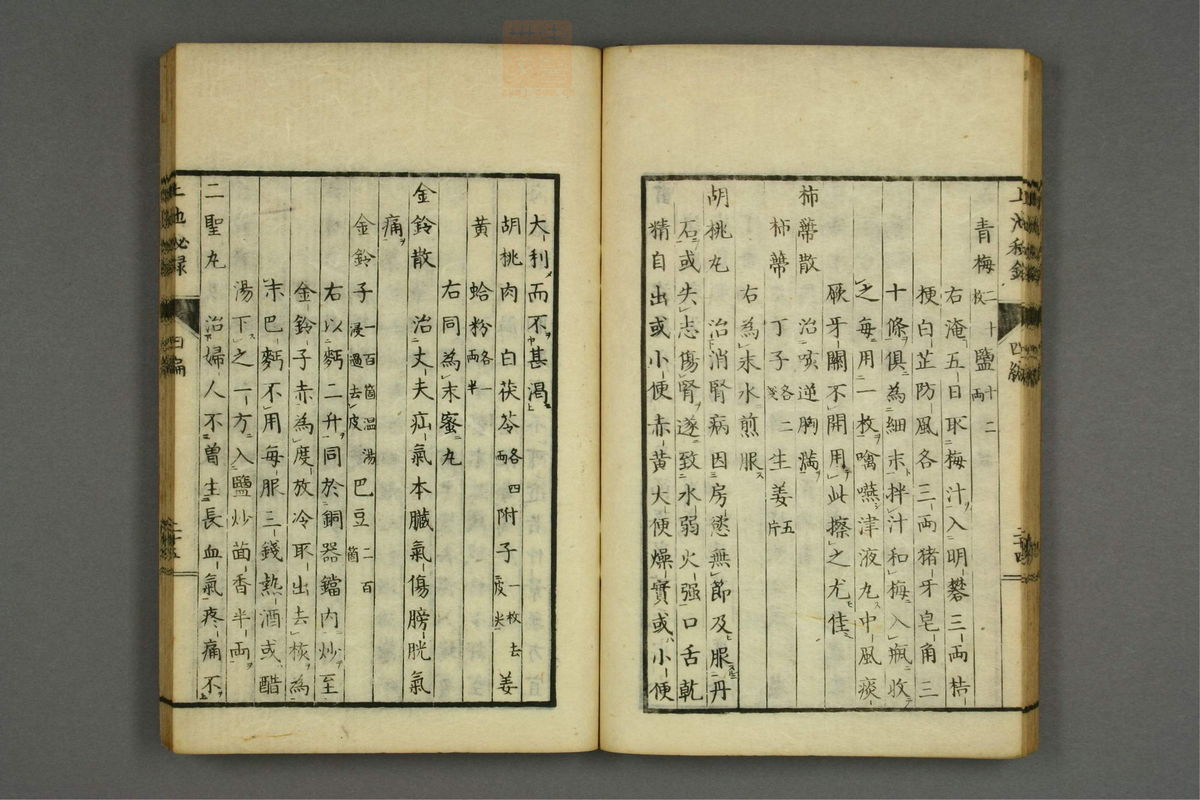 青梅二十枚 鹽十二兩
右淹五日取梅汁入明礬三兩桔
梗白芷防風各三兩猪牙皂角三
十條俱為細末拌汁和梅入瓶收
之每用一枚噙嚥津液凡中風痰
厥牙關不開用此擦之尤佳
柿蔕散 治咳逆胸滿
柿蔕 丁子各二戔 生姜五片
右為末水煎服
胡桃丸 治消腎病因房慾無節及服丹
石或失志傷腎遂致水弱火强口舌乾
精自出或小便赤黄大便燥實或小便
大利而不甚渴
胡桃肉 白茯苓各四兩 附子一枚去皮尖 姜
黄 蛤粉各一兩半
右同為末蜜丸
金鈴散 治丈夫疝氣本臟氣傷膀胱氣
痛
金鈴子一百箇温湯浸過去皮 巴豆二百箇
右以麪二升同於銅器鐺内炒至
金鈴子赤為度放冷取出去核為
末巴麪不用每服三錢熱酒或醋
湯下之一方入鹽炒茴香半兩
二聖丸 治婦人不曽生長血氣疼痛不
上池秘録
四編
二十四
上池秘録
四編
二十五